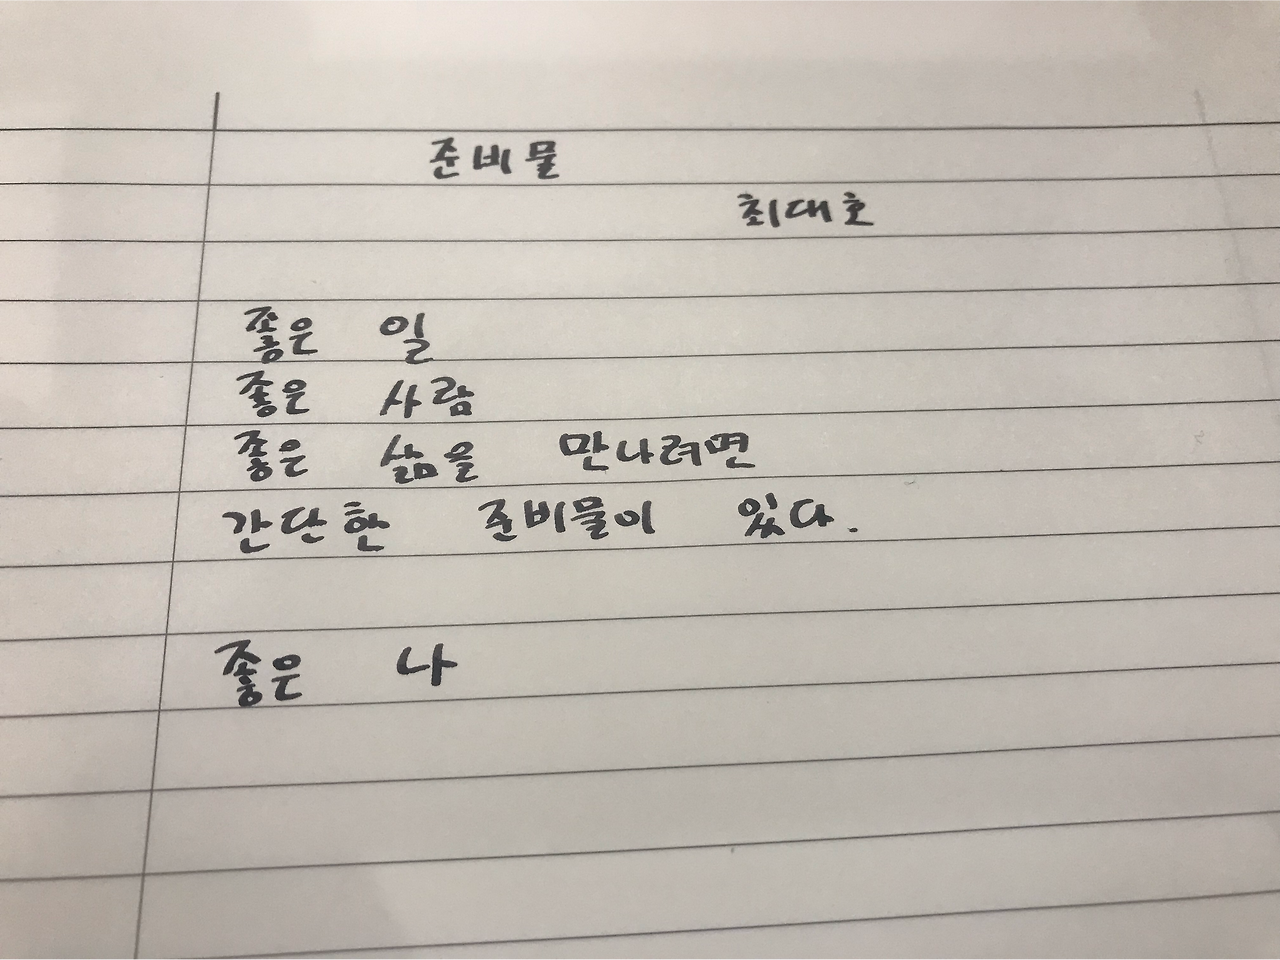 준비물
최대호
좋은 일
좋은 사람
좋은 삶을 만나려면
간단한 준비물이 있다.
좋은 나